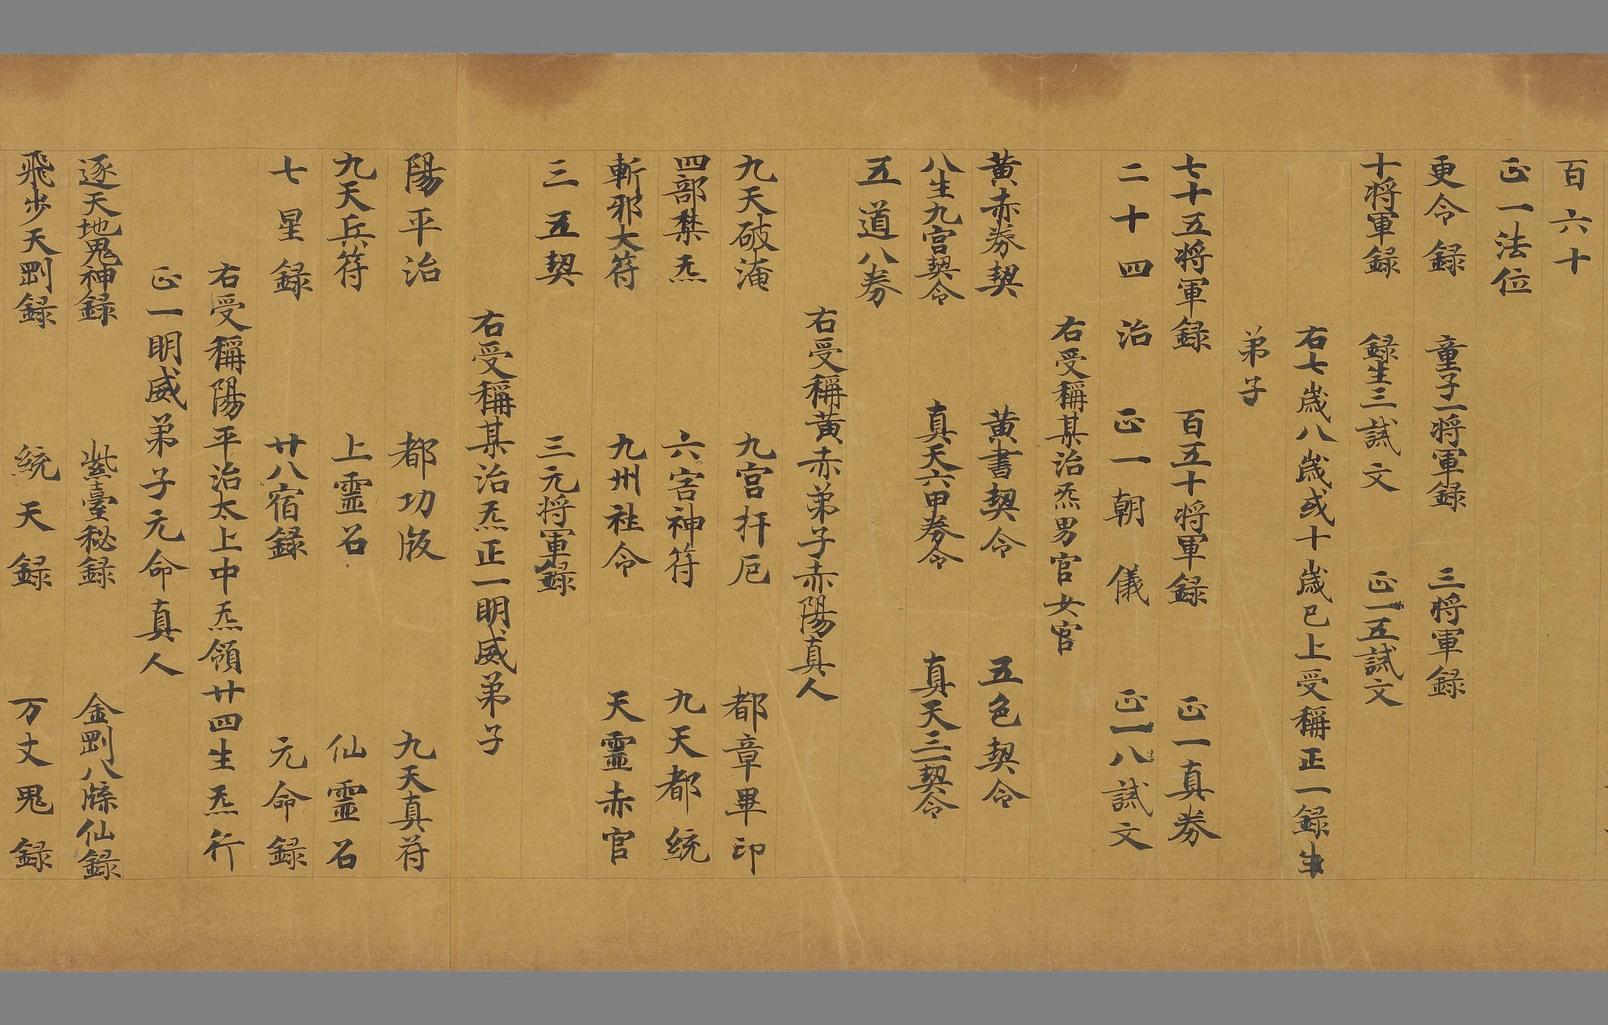 百六十
正一法位
更令録 童子一将軍録 三将軍録
十将軍録 録生三試文 正一五試文
右七歳八歳或十歳已上受稱正一録生
弟子
七十五将軍録 百五十将軍録 正一真券
二十四治 正一朝儀 正一八試文
右受稱某治炁男官女官
黄赤券契 黄書契令 五色契令
八生九宮契令 真天六甲券令 真天三契令
五道八券
右受稱黄赤弟子赤陽真人
九天破淹 九宮扞厄 都章畢印
四部禁炁 六害神符 九天都統
斬邪大符 九州社令 天靈赤官
三五契 三元将軍録
右受稱某治炁正一明威弟子
陽平治 都功版 九天真符
九天兵符 上靈召 仙靈召
七星録 廿八宿録 元命録
右受稱陽平治太上中炁領廿四生炁行
正一明威弟子元命真人
逐天地鬼神録 紫臺秘録 金剛八牒仙録
飛歩天剛録 統天録 万丈鬼録